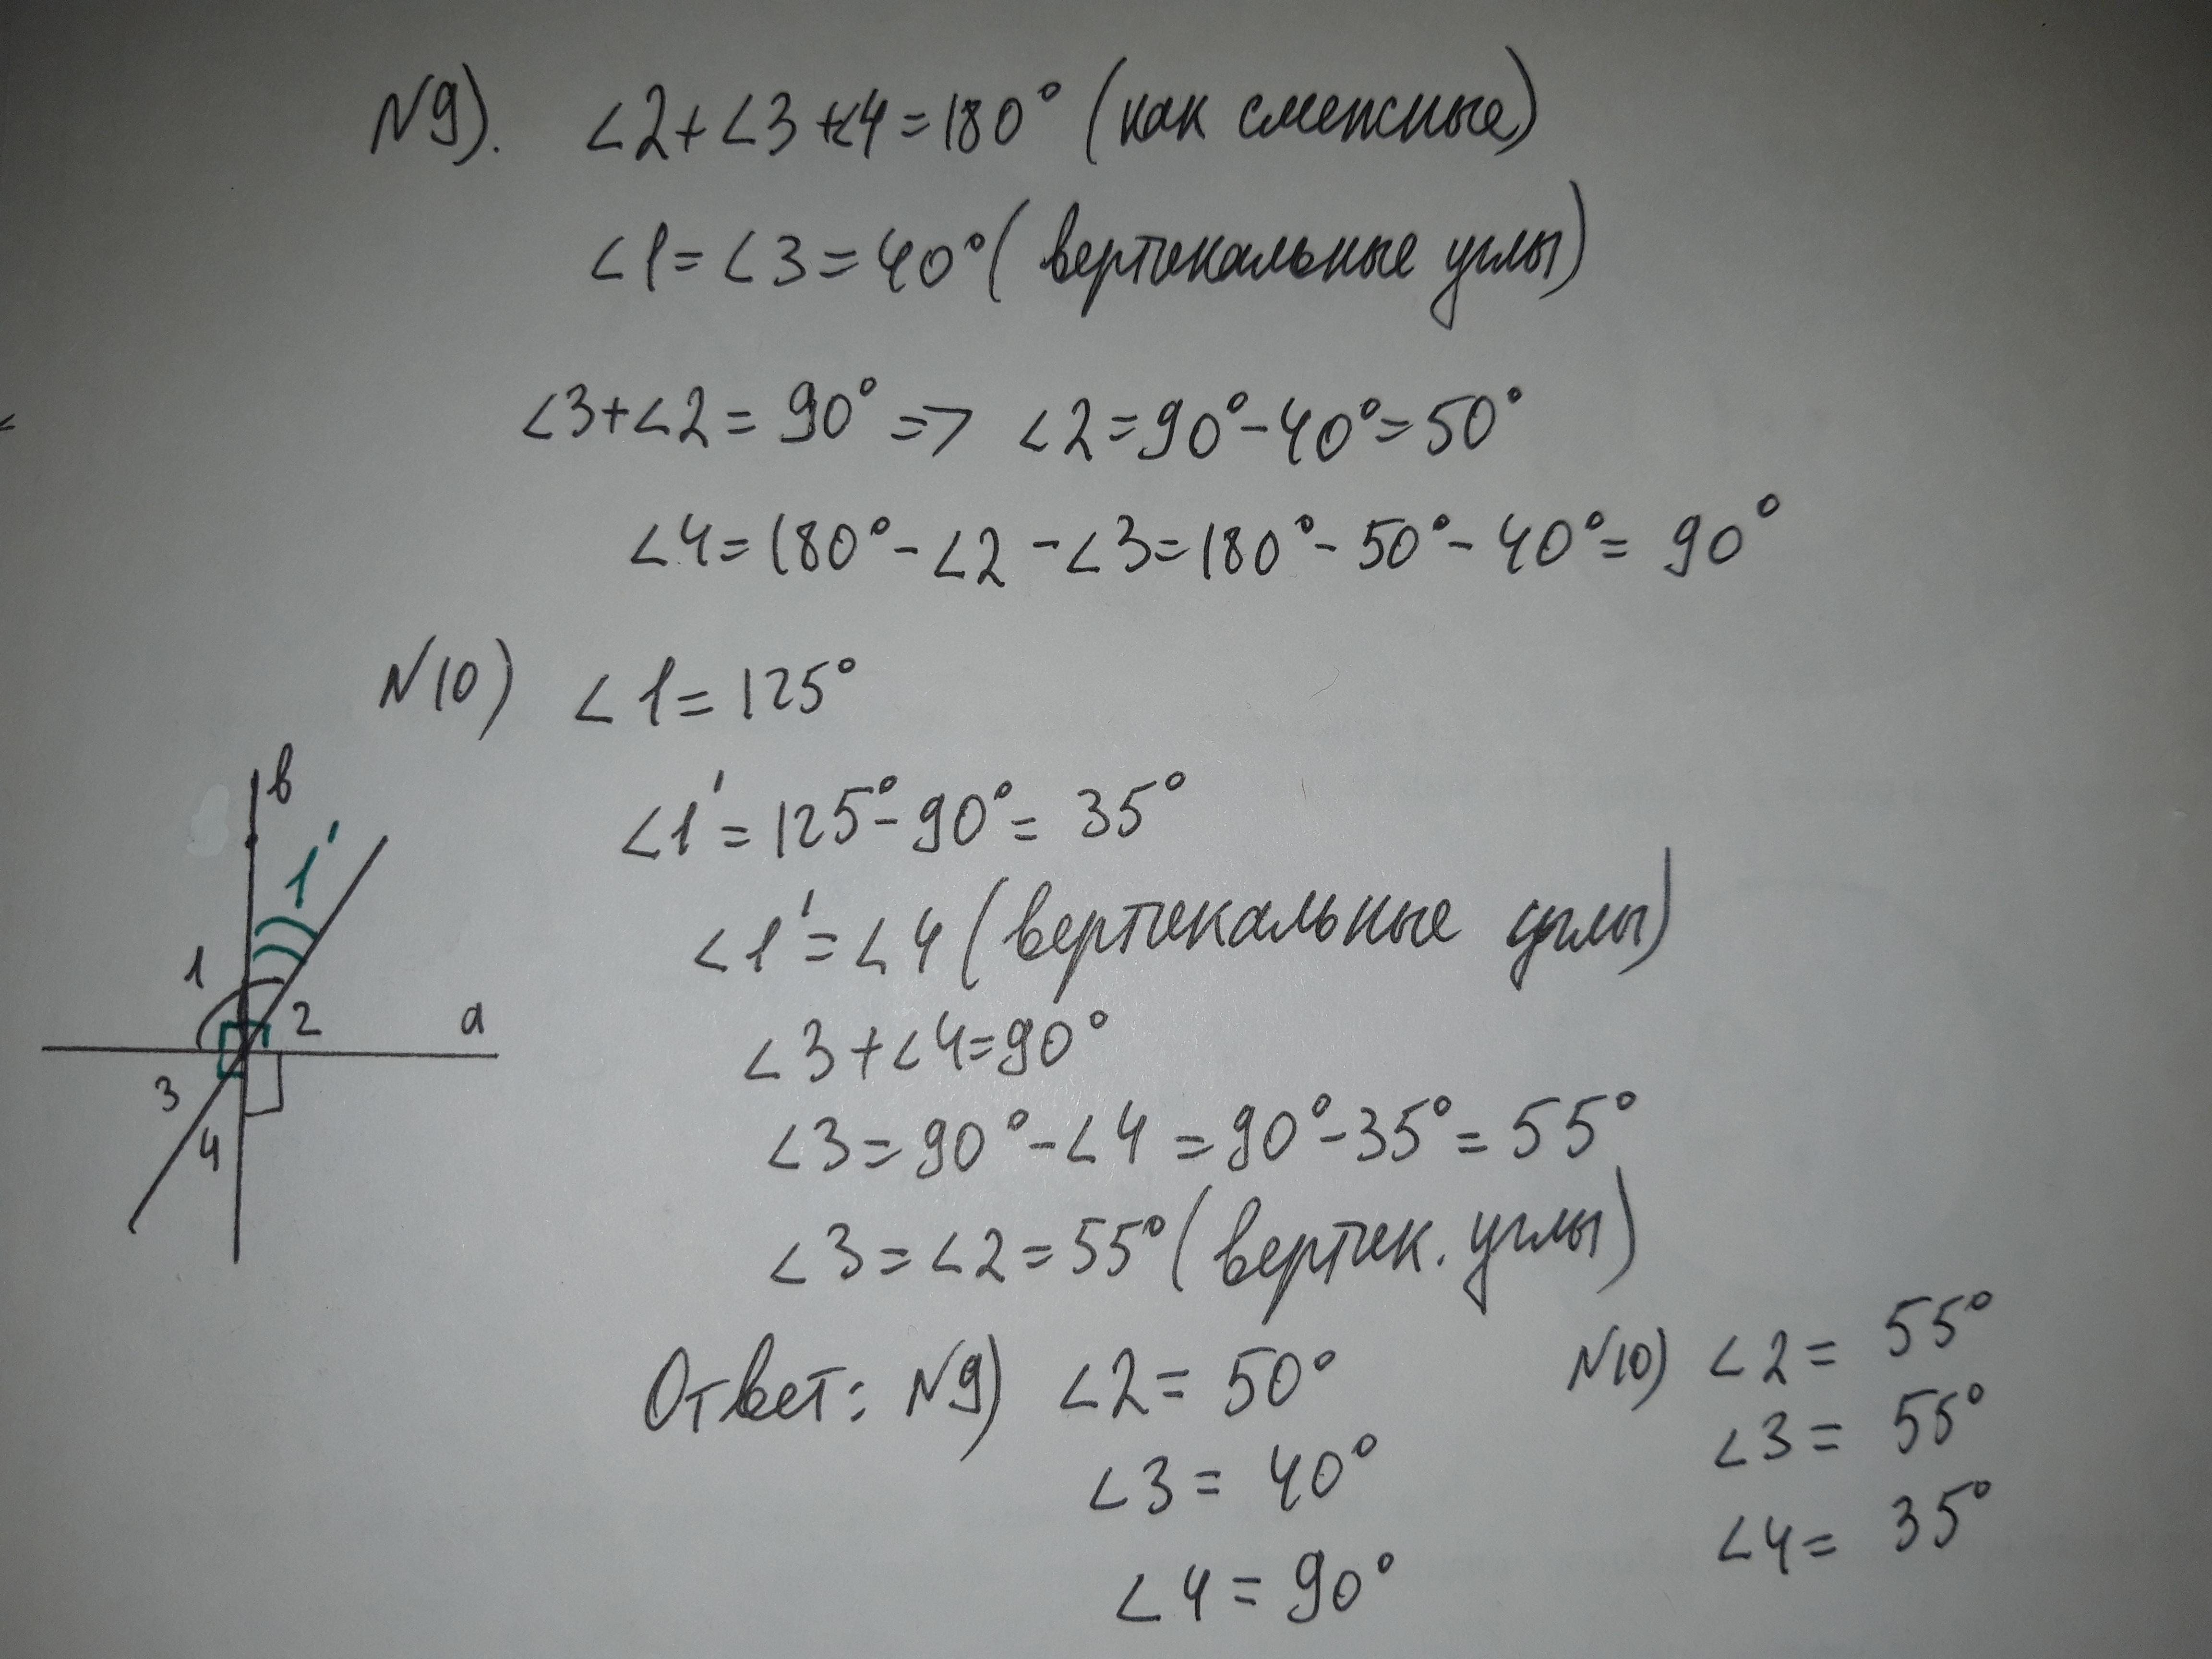 N9). ∠2+∠3+∠4=180° (как смежные)
∠1=∠3=40° (вертекальные углы)
∠3+∠2=90° => ∠2=90°-40°=50°
∠4=180°-∠2-∠3=180°-50°-40°=90°
N10) ∠1=125°
∠1'=125°-90°=35°
∠1'=∠4 (вертекальные углы)
∠3+∠4=90°
∠3=90°-∠4=90°-35°=55°
∠3=∠2=55° (вертек. углы)
в
1'
1
2
a
3
4
Ответ: N9) ∠2=50°
∠3=40°
∠4=90°
N10) ∠2=55°
∠3=55°
∠4=35°